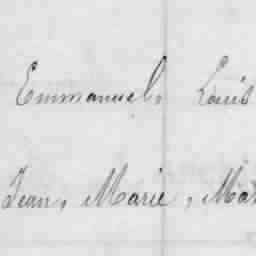 Emmanuel, Louis
Jean, Marie, Mar